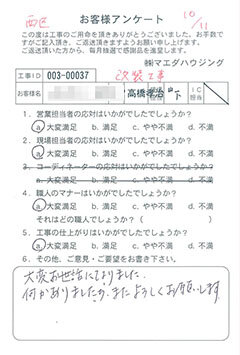 西区
お客様アンケート
10/11
この度は工事のご用命を頂きありがとうございました。お手数で
すがご記入頂き、ご返送頂きますようお願い申し上げます。
ご返送頂いた方から、毎月抽選で感謝品を進呈します。
㈱マエダハウジング
工事ID 003-00037 改装工事
お客様名 高橋孝治 IC担当
1. 営業担当者の応対はいかがでしたでしょうか？
a 大変満足 b. 満足 c. やや不満 d. 不満
2. 現場担当者の応対はいかがでしたでしょうか？
a 大変満足 b. 満足 c. やや不満 d. 不満
3. コーディネーターの応対はいかがでしたでしょうか？
a. 大変満足 b. 満足 c. やや不満 d. 不満
4. 職人のマナーはいかがでしたでしょうか？
a 大変満足 b. 満足 c. やや不満 d. 不満
それはどの職人でしょうか？（ ）
5. 工事の仕上がりはいかがでしたでしょうか？
a 大変満足 b. 満足 c. やや不満 d. 不満
6. その他、ご意見・ご要望をお書き下さい。
大変お世話になりました。
何かありましたら、またよろしくお願いします